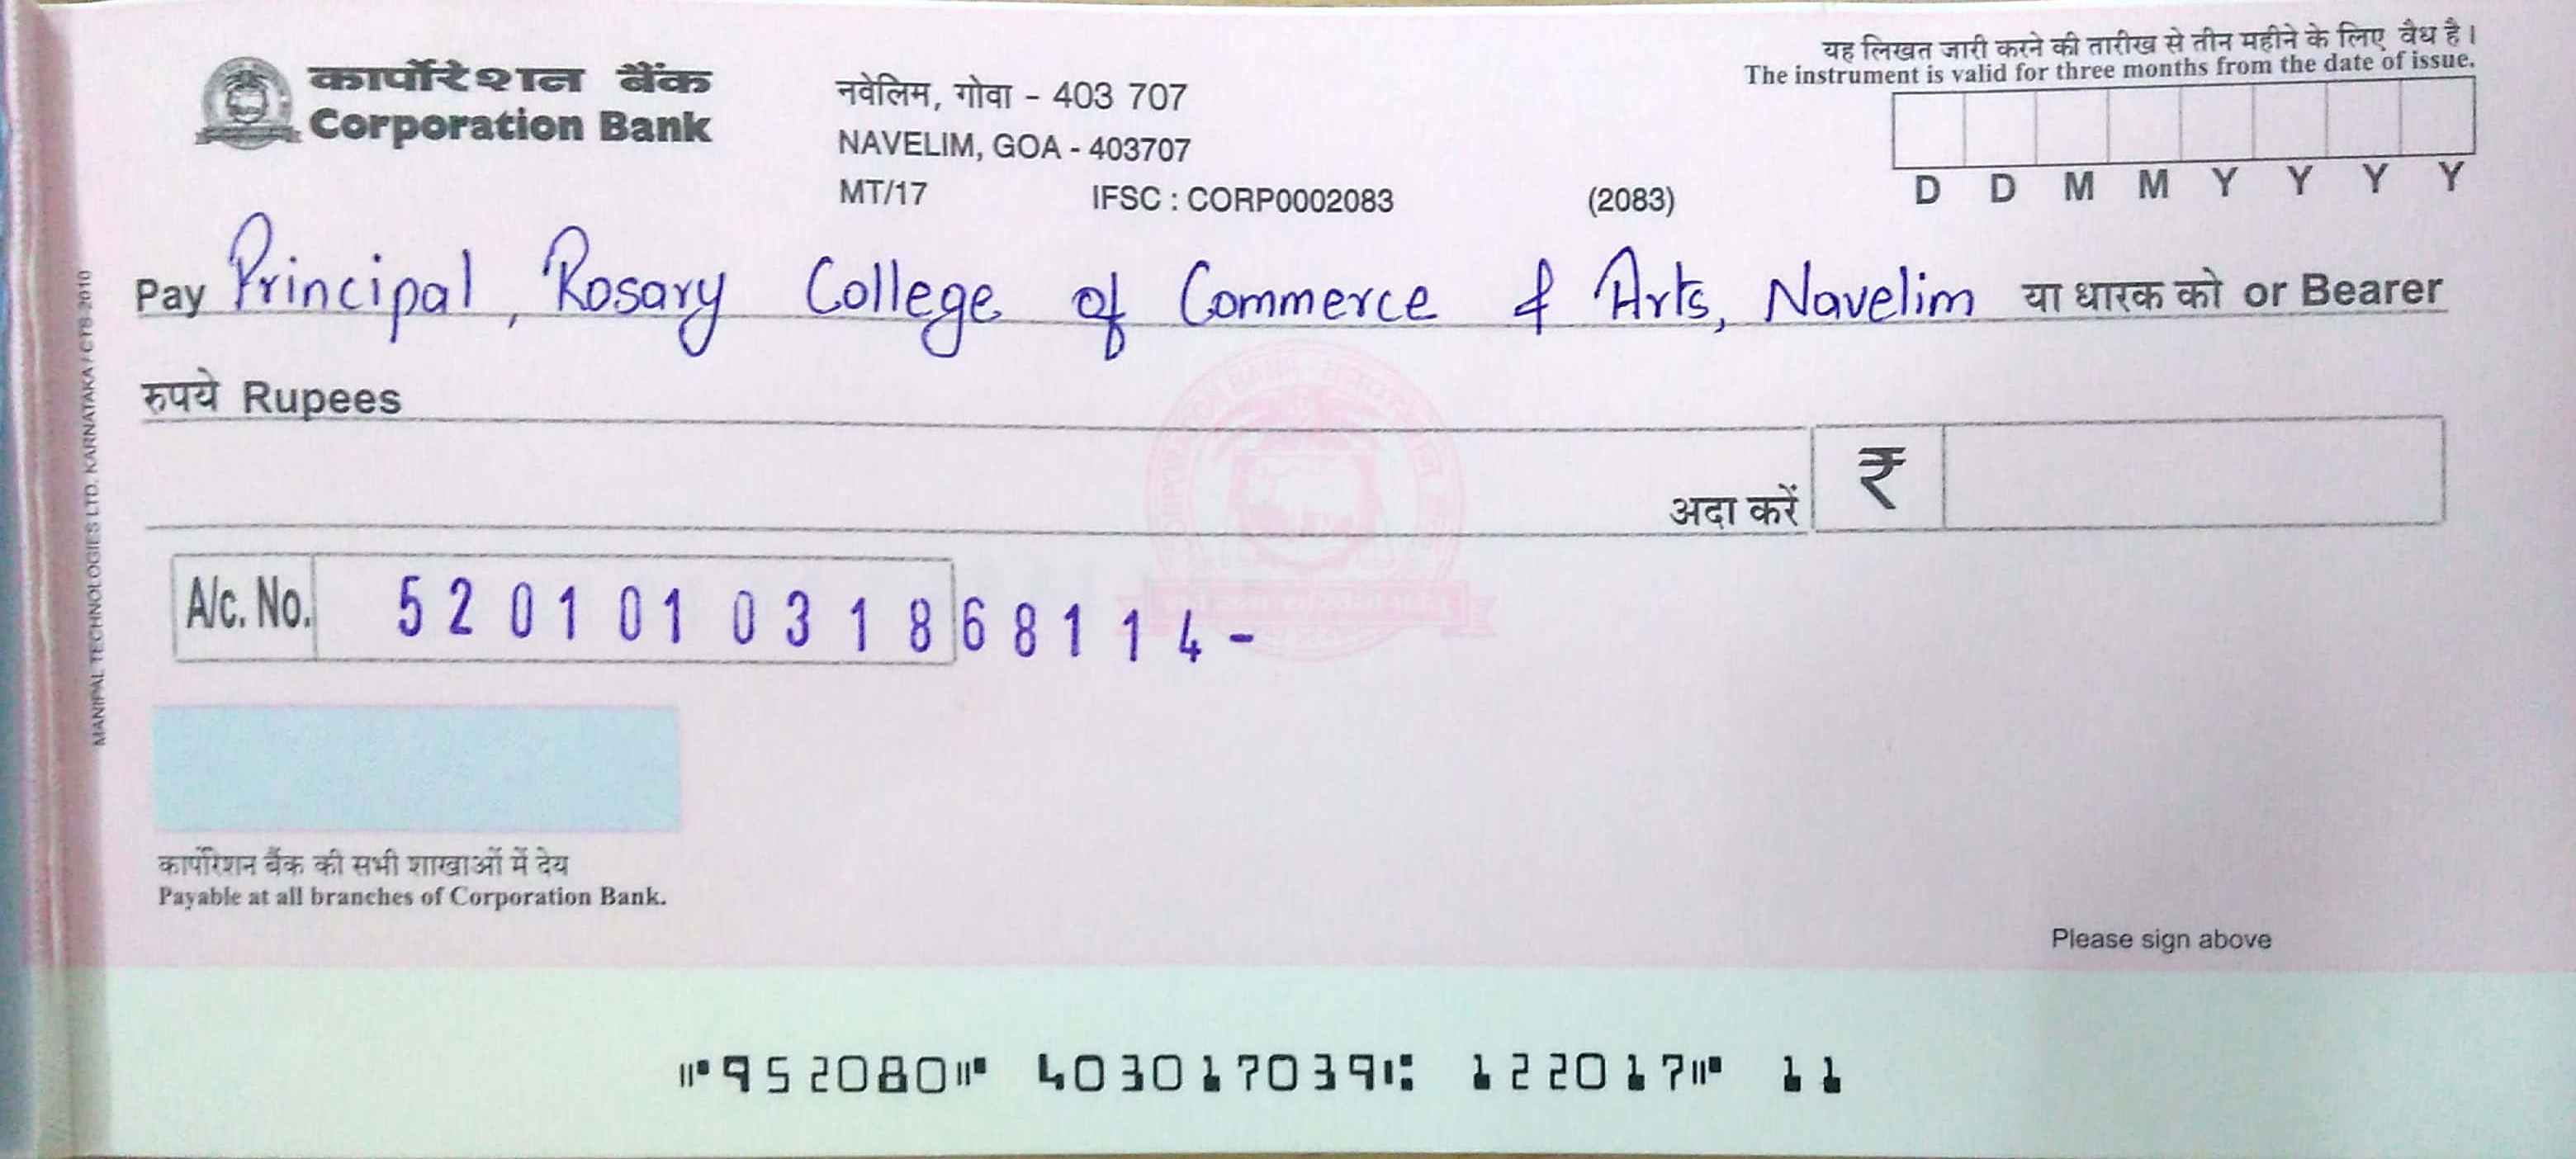 यह लिखत जारी करने की तारीख से तीन महीने के लिए वैध है।
The instrument is valid for three months from the date of issue.
कार्पोरेशन बैंक
Corporation Bank
नवेलिम, गोवा - 403 707
NAVELIM, GOA - 403707
MT/17 IFSC : CORP0002083 (2083)
D D M M Y Y Y Y
Pay Principal, Rosary College of Commerce & Arts, Navelim या धारक को or Bearer
रुपये Rupees
अदा करें ₹
A/c. No. 520101031868114-
MANIPAL TECHNOLOGIES LTD. KARNATAKA / CTS-2010
कार्पोरेशन बैंक की सभी शाखाओं में देय
Payable at all branches of Corporation Bank.
Please sign above
⑈952080⑈ 403017039⑆ 122017⑈ 11